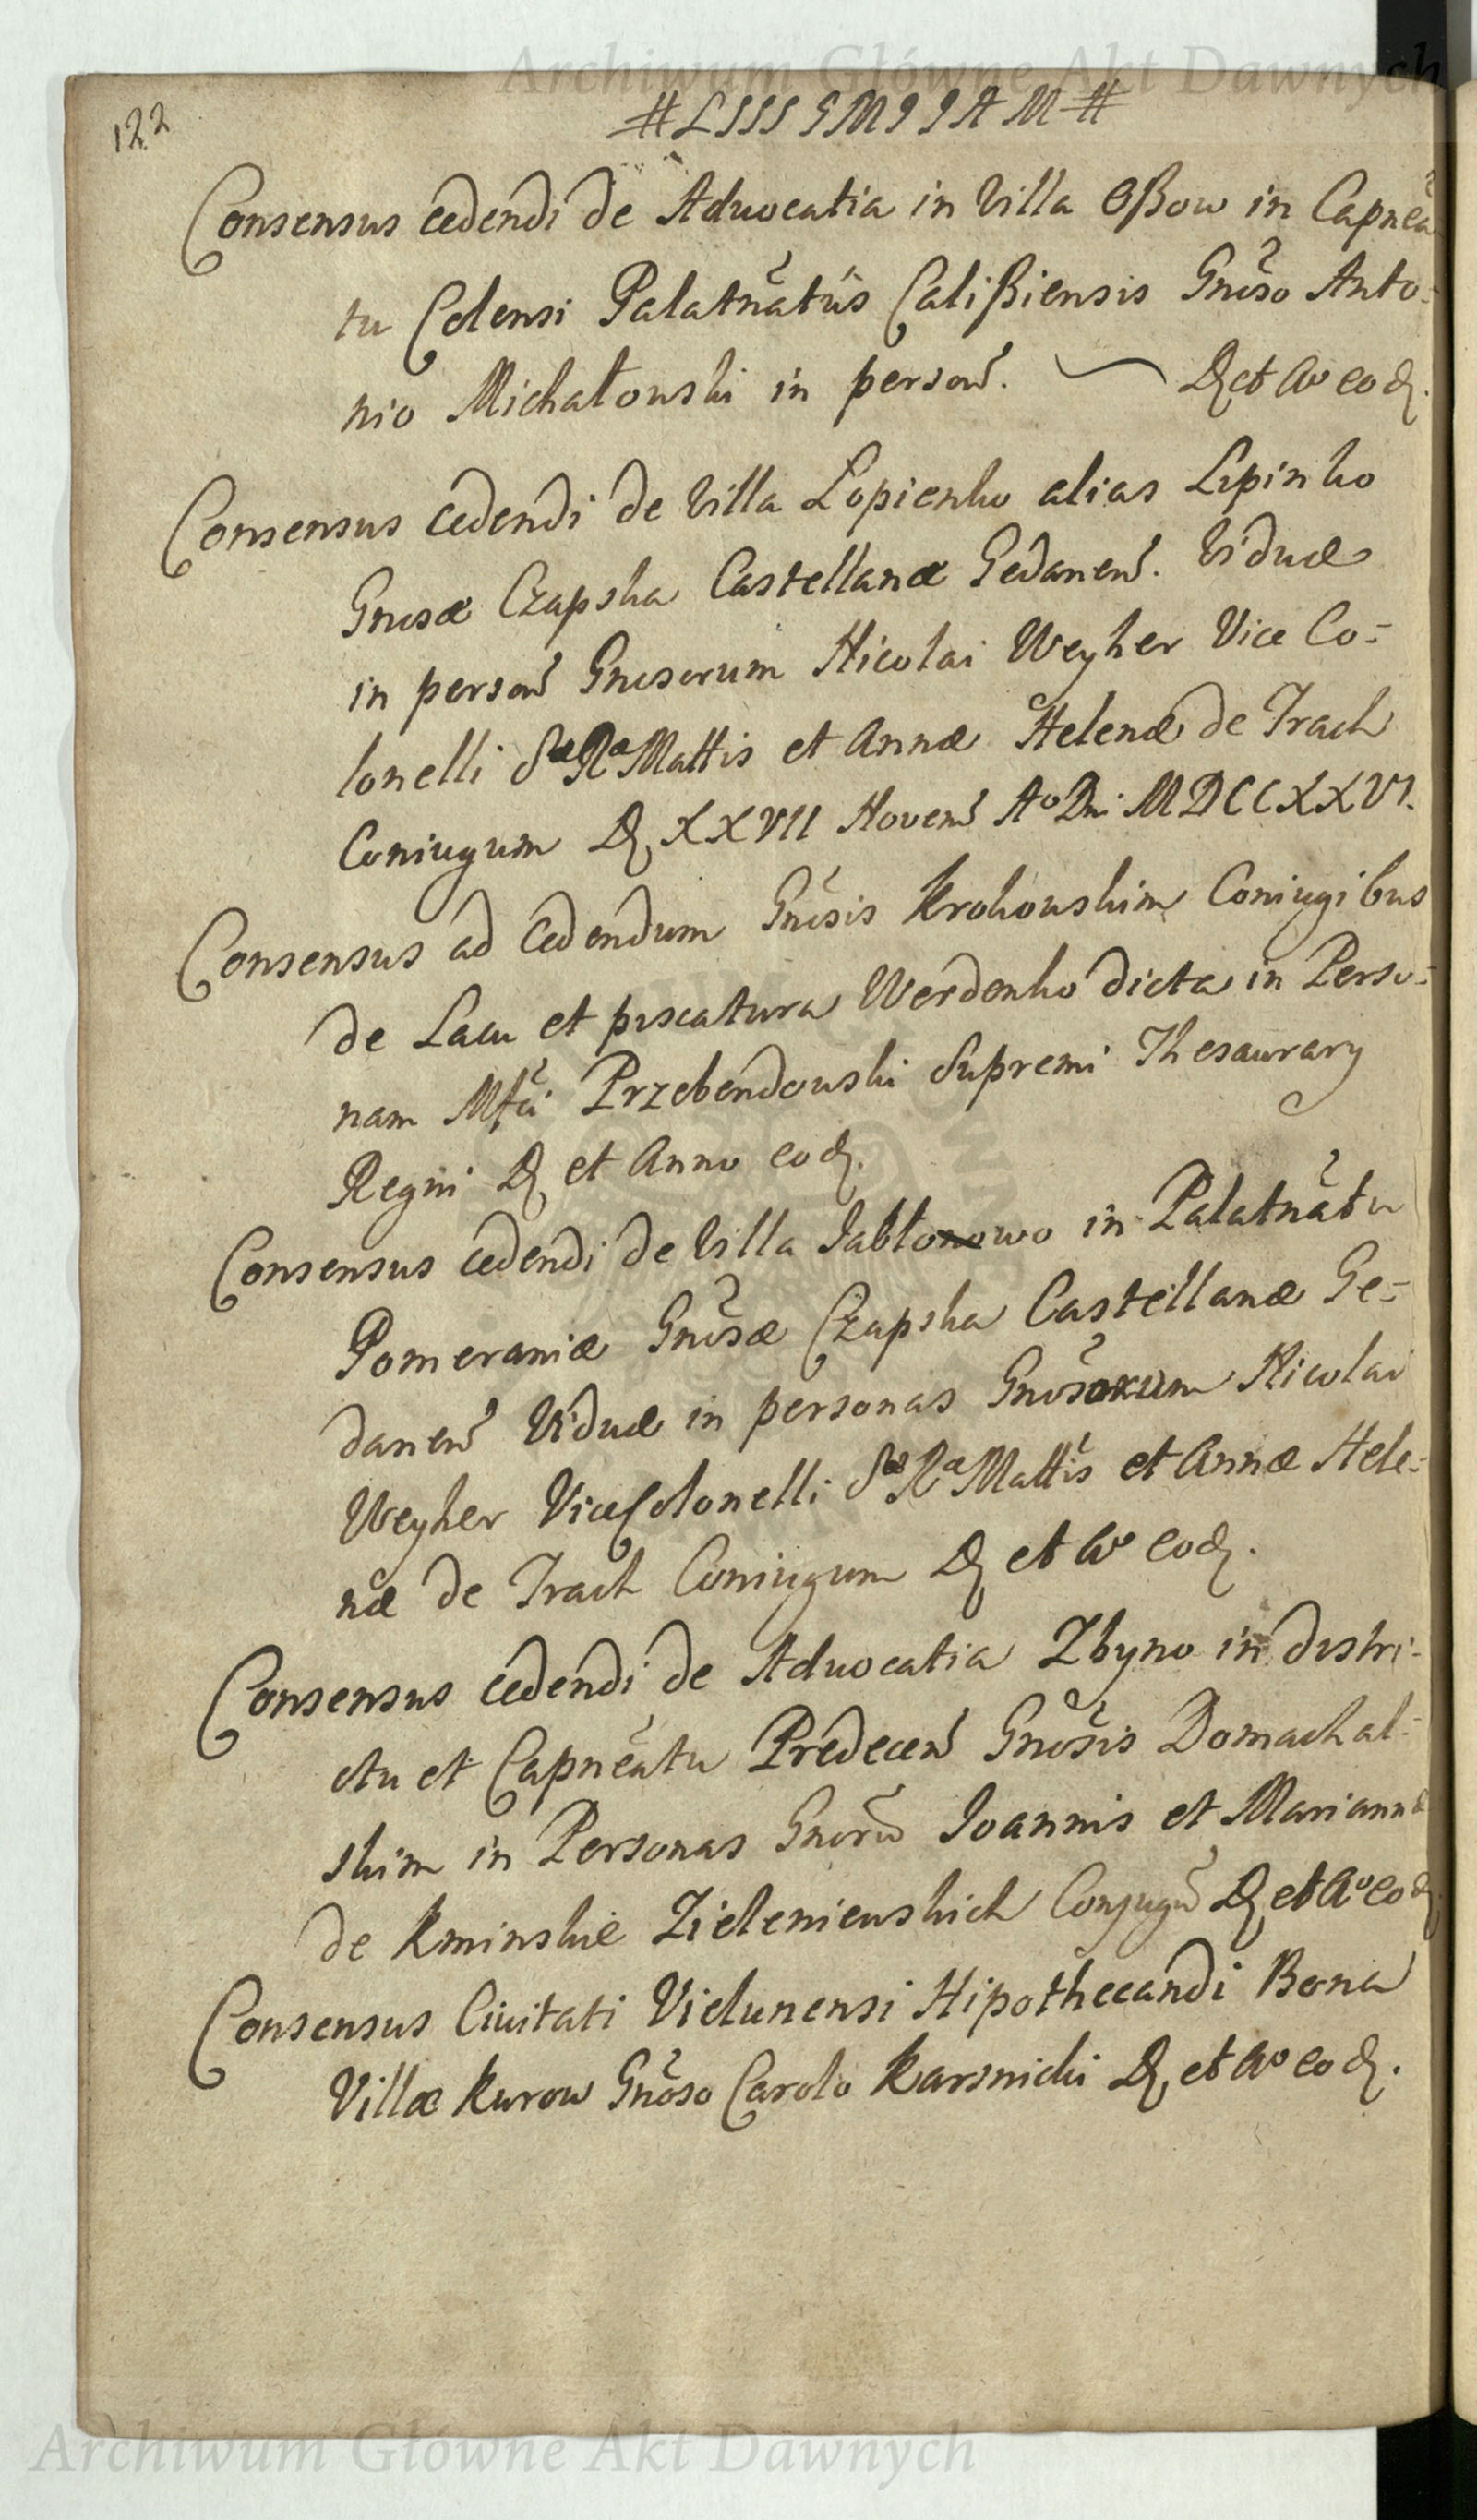 Archiwum Główne Akt Dawnych
122
Consensus cedendi de Advocatia in Villa Oßow in Capnea
tu Colensi Palatnatûs Calißiensis Gnõso Anto=
nio Michałowski in person. D. et Aº eod.
Consensus cedendi de Villa Łopienko alias Lipinko
Gnosæ Czapska Castellanæ Gedanen. Viduæ
in person Gnosorum Nicolai Weyher Vice Co=
lonelli Sæ Ræ Mattis et Annæ Helenæ de Trach
Coniugum D. XXVII Novem Aº Dni MDCCXXVI.
Consensus ad Cedendum Gnõsis Krokowskim Coniugibus
de Lacu et piscatura Werdenko dicta in Perso=
nam Mfci Przebendowski Supremi Thesaurary
Regni D. et Anno eod.
Consensus cedendi de Villa Jabłonowo in Palatnatu
Pomeraniæ Gnõsæ Czapska Castellanæ Ge=
danen Viduæ in personas Gnõsorum Nicolai
Weyher ViceColonelli Sæ Ræ Mattis et Annæ Hele=
næ de Trach Coniugum D. et Aº eod.
Consensus cedendi de Advocatia Zbyno in distri=
ctu et Capneatu Predecen Gnõsis Domachal=
skim in Personas Gnorũ Joannis et Mariannæ
de Kminskie Zieleniewskich Conjugũ D. et Aº eod
Consensus Civitati Vielunensi Hipothecandi Bona
Villæ Kurow Gnõso Carolo Karsnicki D. et Aº eod.
Archiwum Główne Akt Dawnych